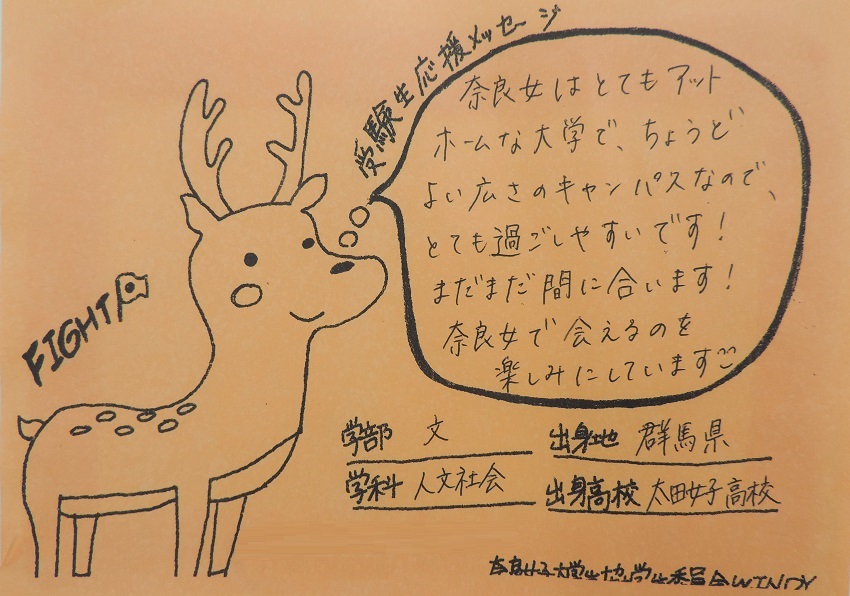 受験生応援メッセージ
奈良女はとてもアット
ホームな大学で、ちょうど
よい広さのキャンパスなので、
とても過ごしやすいです!
まだまだ間に合います!
奈良女で会えるのを
楽しみにしています
FIGHT
学部 文
学科 人文社会
出身地 群馬県
出身高校 太田女子高校
奈良女子大学生協学生委員会WINDY